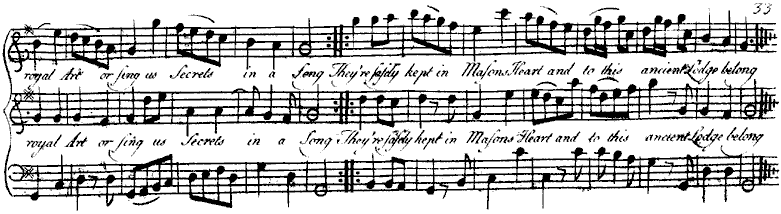 33
royal Art or sing us Secrets in a Song They're safely kept in Masons Heart and to this ancient Lodge belong
royal Art or sing us Secrets in a Song They're safely kept in Masons Heart and to this ancient Lodge belong